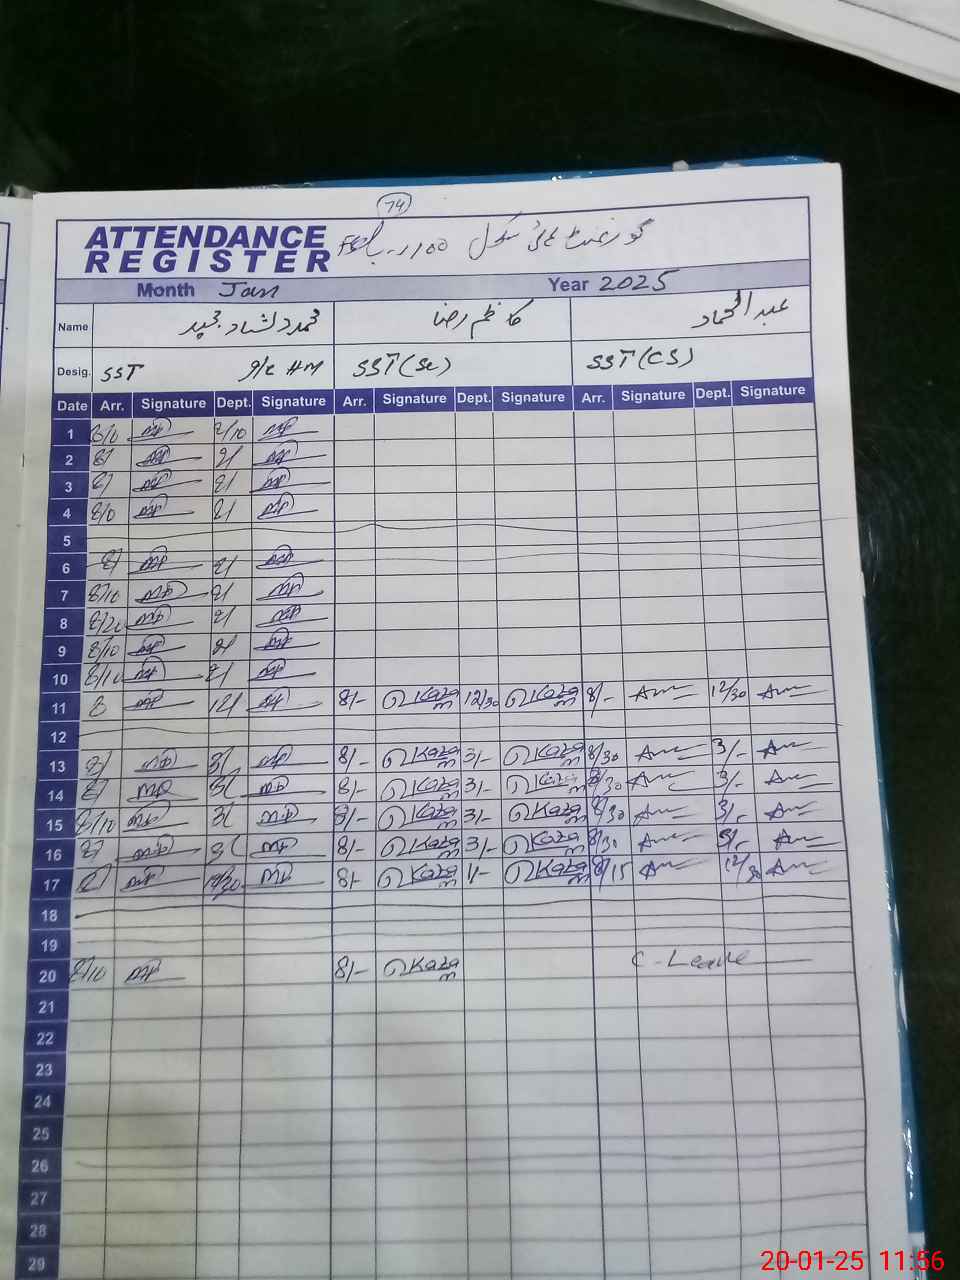 74
ATTENDANCE REGISTER گورنمنٹ ہائی سکول 100 ر۔ب
Month Jan Year 2025
Name محمد دلشاد مجید کاظم رضا عبد الحماد
Desig. SST I/C HM SST (Sc) SST (CS)
Date Arr. Signature Dept. Signature Arr. Signature Dept. Signature Arr. Signature Dept. Signature
1 8/10 2/10
2 8/ 2/
3 8/ 2/
4 8/10 2/
5
6 8/ 2/
7 8/10 2/
8 8/20 2/
9 8/10 2/
10 8/10 2/
11 8 12/ 8/- Kazam 12/30 Kazam 8/- 12/30
12
13 8/ 3/ 8/- Kazam 3/- Kazam 8/30 3/-
14 8/ 3/ 8/- Kazam 3/- Kazam 8/30 3/-
15 8/10 3/ 8/- Kazam 3/- Kazam 8/30 3/-
16 8/ 3/ 8/- Kazam 3/- Kazam 8/30 3/-
17 8/ 12/30 8/- Kazam 1/- Kazam 8/15 12/30
18
19
20 8/10 8/- Kazam C-Leave
21
22
23
24
25
26
27
28
29
20-01-25 11:56